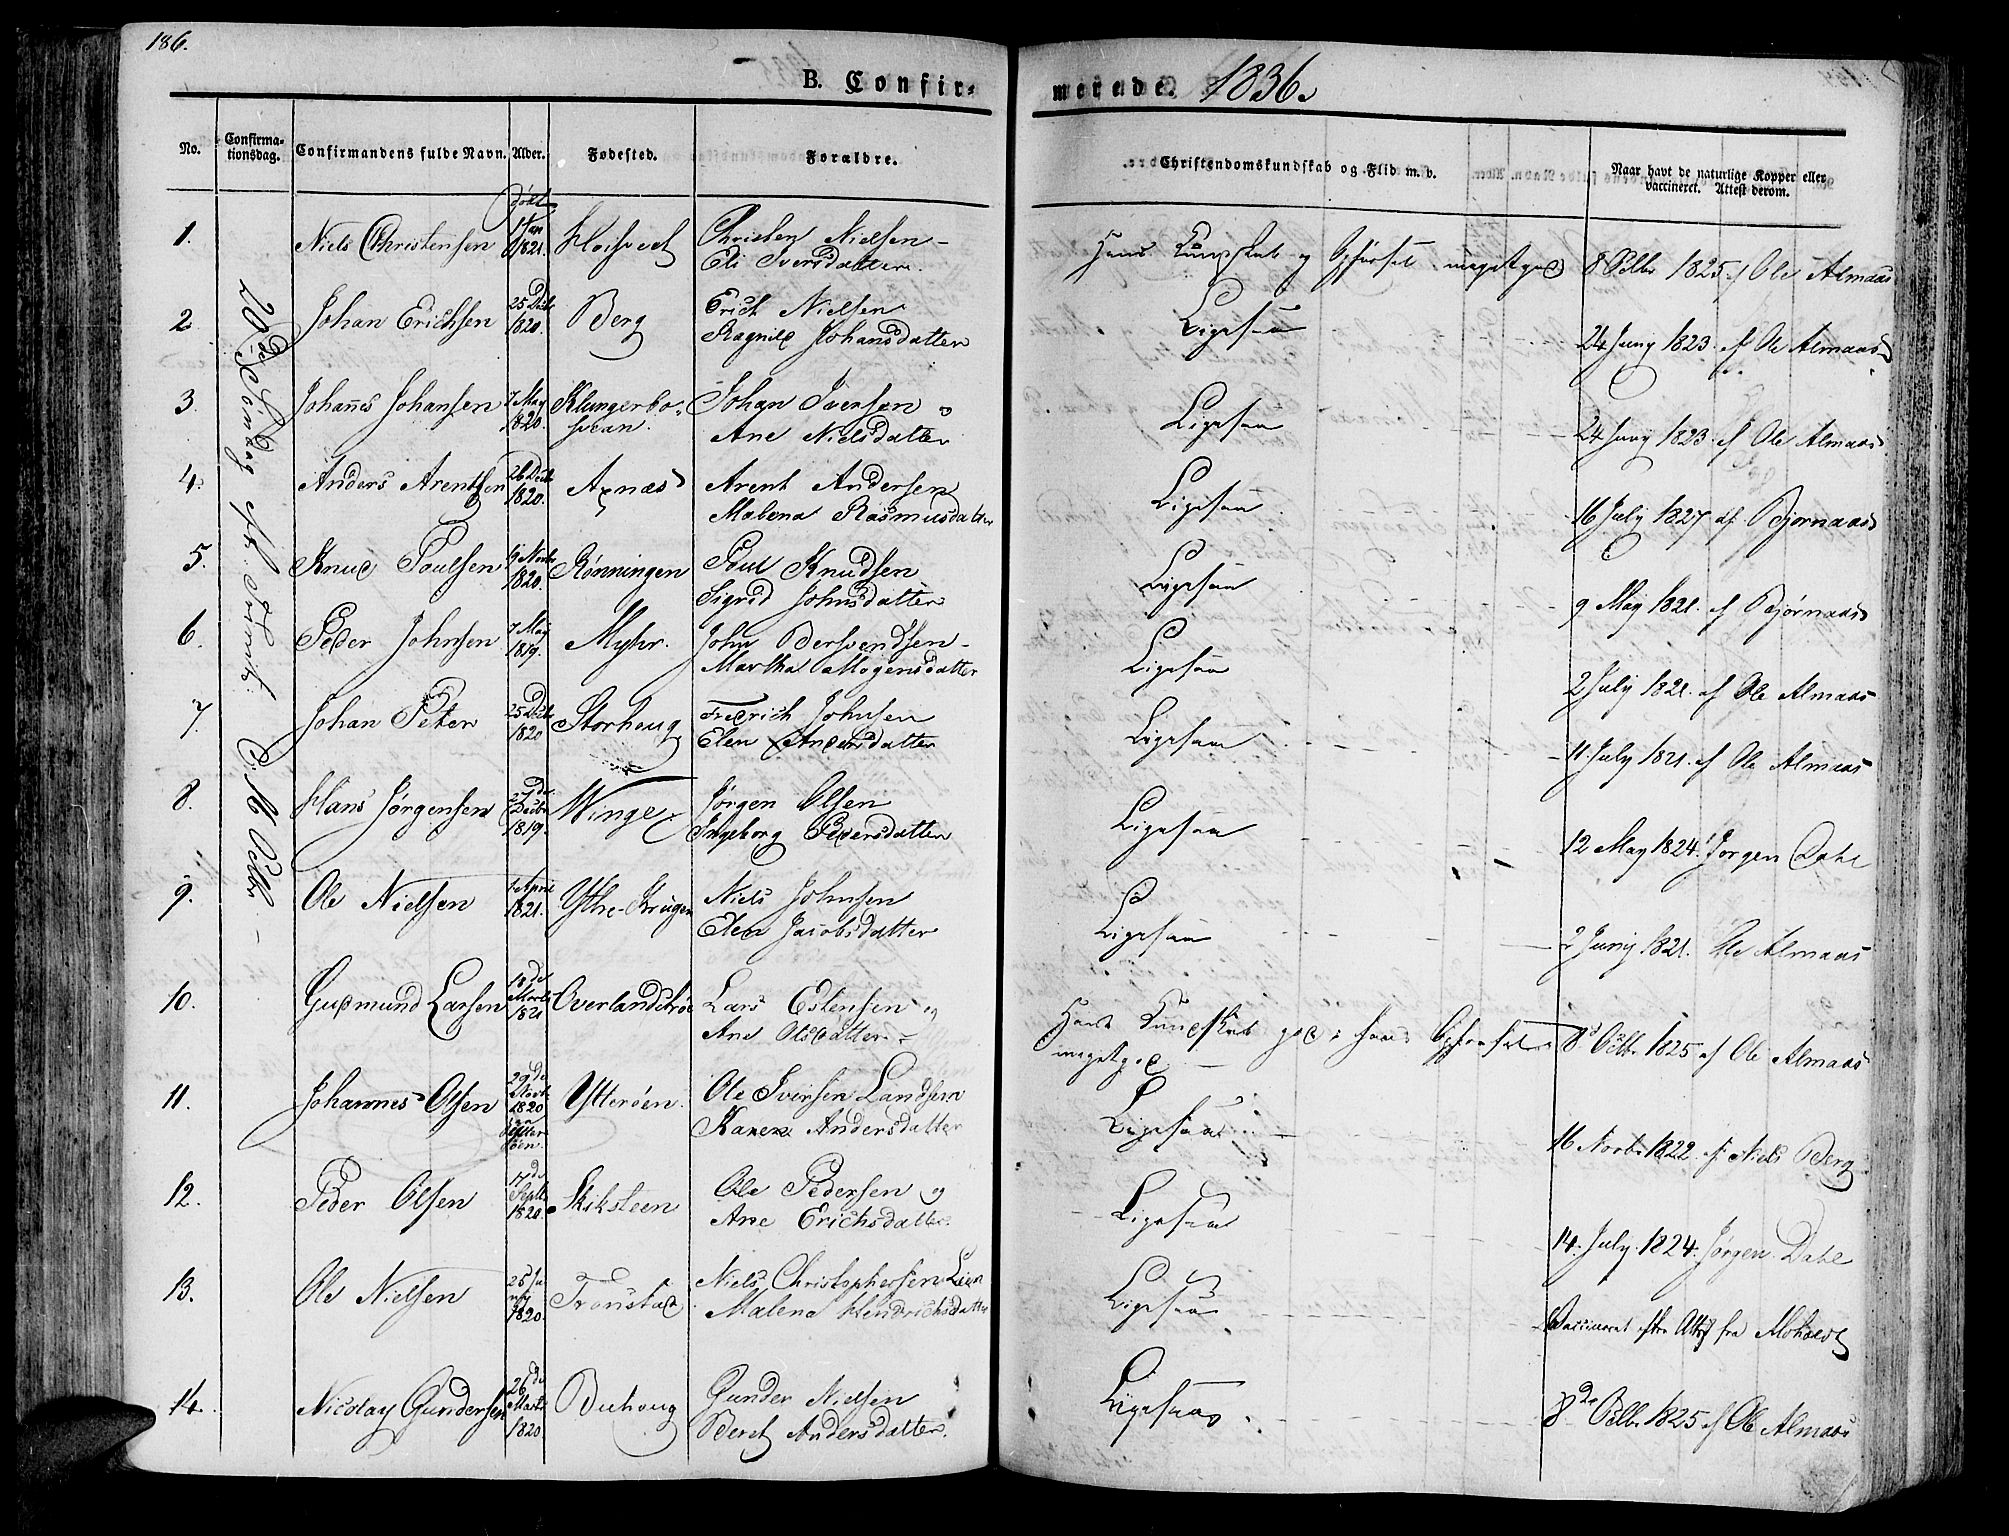 186.
B. Confir-
merede. 1836.
No.
Confirma-
tionsdag.
Confirmandens fulde Navn.
Alder.
Fødested.
Forældre.
Christendomskundskab og Flid m. v.
Naar havt de naturlige Kopper eller
vaccineret. Attest derom.
20de Søndag Tr: 16 Octbr
født
1. Niels Christensen 1 Jan 1821. Hojsvedt Christen Nielsen Eli Iversdatter. Hans Kundskab og Opførsel megetgod 8 Octbr 1825. Ole Almaas
2 Johan Erichsen 25 Decbr 1820. Berg Erich Nielsen Ragnild Johansdatter Ligesaa 24 Juny 1823. af Ole Almaas
3. Johanes Johansen 7 May 1820. Johan Iversen og Ane Nielsdatter Ligesaa 24 Juny 1823. af Ole Almaas
4. Anders Arentsen 26 Decbr 1820. Arent Andersen Malena Rasmusdatter Ligesaa 16 July 1827 af Bjørnaas
5. Knud Poulsen 9 Novbr 1820. Rønningen Poul Knudsen Sigrid Johnsdatter Ligesaa 9 May 1821. af Bjørnaas
6. Peder Johnsen 7 May 1819. Myhr. John Bersvendsen Martha Mogensdatter Ligesaa 2 July 1821. af Ole Almaas
7. Johan Peter 25 Decbr 1820 Storhoug Fredrich Johnsen Elen Andersdatter Ligesaa 11 July 1821. af Ole Almaas
8. Hans Jørgensen 27de Decbr 1819. Winge Jørgen Olsen Ingeborg Pedersdatter Ligesaa 12 May 1824. Jørgen Dahl
9. Ole Nielsen 1 April 1821. Ythre-Krugen Niels Johnsen Elen Jacobsdatter Ligesaa 2 Juny 1821. Ole Almaas
10. Gudmund Larsen Marts 1821 Lars Estensen og Ane Olsdatter Hans Kundskab god, hans Opførsel megetgod 8 Octbr 1825 af Ole Almaas
11. Johannes Olsen 29de Novbr 1820 Ytterøen. Ole Iversen Landsem Karen Andersdatter Ligesaa 16 Novbr 1822. af Niels Berg
12. Peder Olsen 17de Septbr 1820. Skiksteen Ole Pedersen og Ane Erichsdatter. Ligesaa 14 July 1824. Jørgen Dahl
13. Ole Nielsen 25 Juny 1820. Tronstad Niels Christophersen Lien Malena Hendrichsdatter Ligesaa Vaccineret efter Attest fra Moholdt
14. Nicolay Gundersen 26de Marts 1820 Buhoug Gunder Nielsen Beret Andersdatter. Ligesaa 8de Octbr 1825 af Ole Almaas